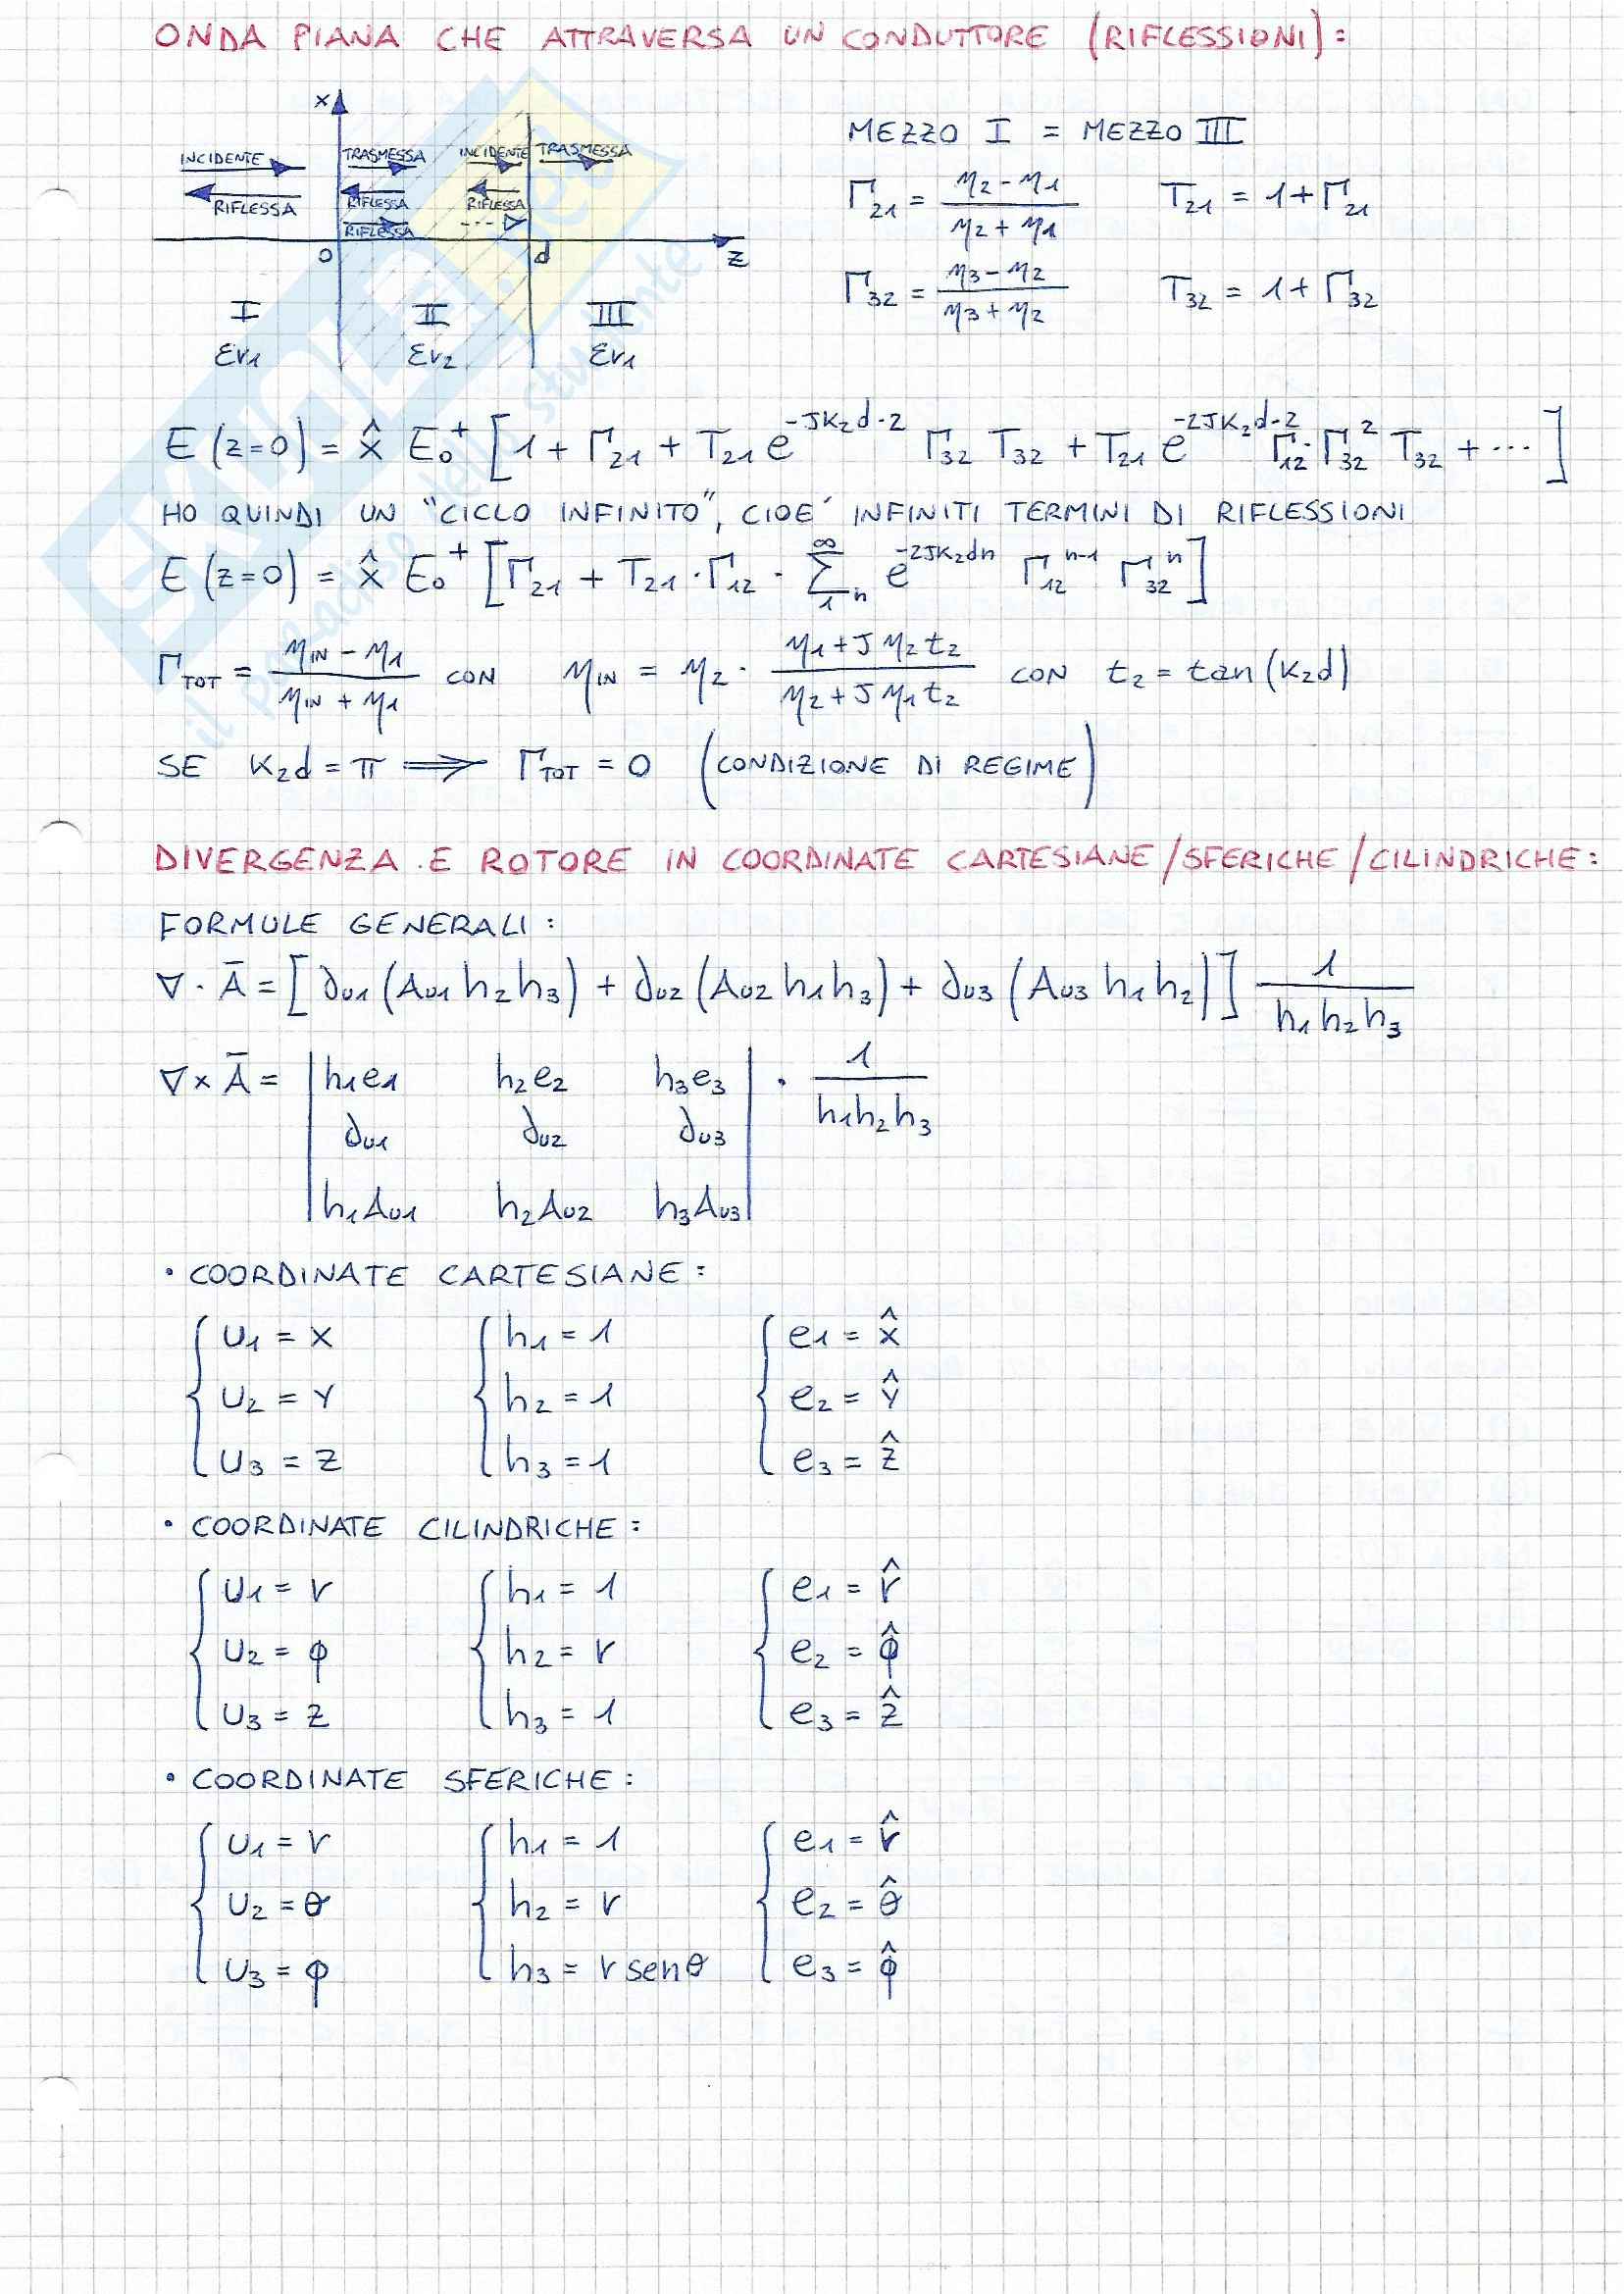 ONDA PIANA CHE ATTRAVERSA UN CONDUTTORE (RIFLESSIONI):
x
INCIDENTE TRASMESSA INCIDENTE TRASMESSA
RIFLESSA RIFLESSA RIFLESSA
RIFLESSA
0 d z
I II III
εr1 εr2 εr1
MEZZO I = MEZZO III
Γ21 = (η2 - η1)/(η2 + η1) T21 = 1 + Γ21
Γ32 = (η3 - η2)/(η3 + η2) T32 = 1 + Γ32
E (z=0) = x̂ E0^+ [1 + Γ21 + T21 e^(-Jk2d·2) Γ32 T32 + T21 e^(-2Jk2d·2) Γ12 · Γ32^2 T32 + ...]
HO QUINDI UN "CICLO INFINITO", CIOE' INFINITI TERMINI DI RIFLESSIONI
E (z=0) = x̂ E0^+ [Γ21 + T21 · Γ12 · Σ_(1 n)^∞ e^(-2Jk2dn) Γ12^(n-1) Γ32^n]
ΓTOT = (ηIN - η1)/(ηIN + η1) CON ηIN = η2 · (η1 + J η2 t2)/(η2 + J η1 t2) CON t2 = tan(k2d)
SE k2d = π ⟹ ΓTOT = 0 (CONDIZIONE DI REGIME)
DIVERGENZA E ROTORE IN COORDINATE CARTESIANE/SFERICHE/CILINDRICHE:
FORMULE GENERALI:
∇ · Ā = [∂u1 (Au1 h2 h3) + ∂u2 (Au2 h1 h3) + ∂u3 (Au3 h1 h2)] 1/(h1 h2 h3)
∇ x Ā = | h1e1 h2e2 h3e3 | · 1/(h1h2h3)
∂u1 ∂u2 ∂u3
h1Au1 h2Au2 h3Au3
• COORDINATE CARTESIANE:
u1 = x h1 = 1 e1 = x̂
u2 = y h2 = 1 e2 = ŷ
u3 = z h3 = 1 e3 = ẑ
• COORDINATE CILINDRICHE:
u1 = r h1 = 1 e1 = r̂
u2 = φ h2 = r e2 = φ̂
u3 = z h3 = 1 e3 = ẑ
• COORDINATE SFERICHE:
u1 = r h1 = 1 e1 = r̂
u2 = θ h2 = r e2 = θ̂
u3 = φ h3 = r senθ e3 = φ̂